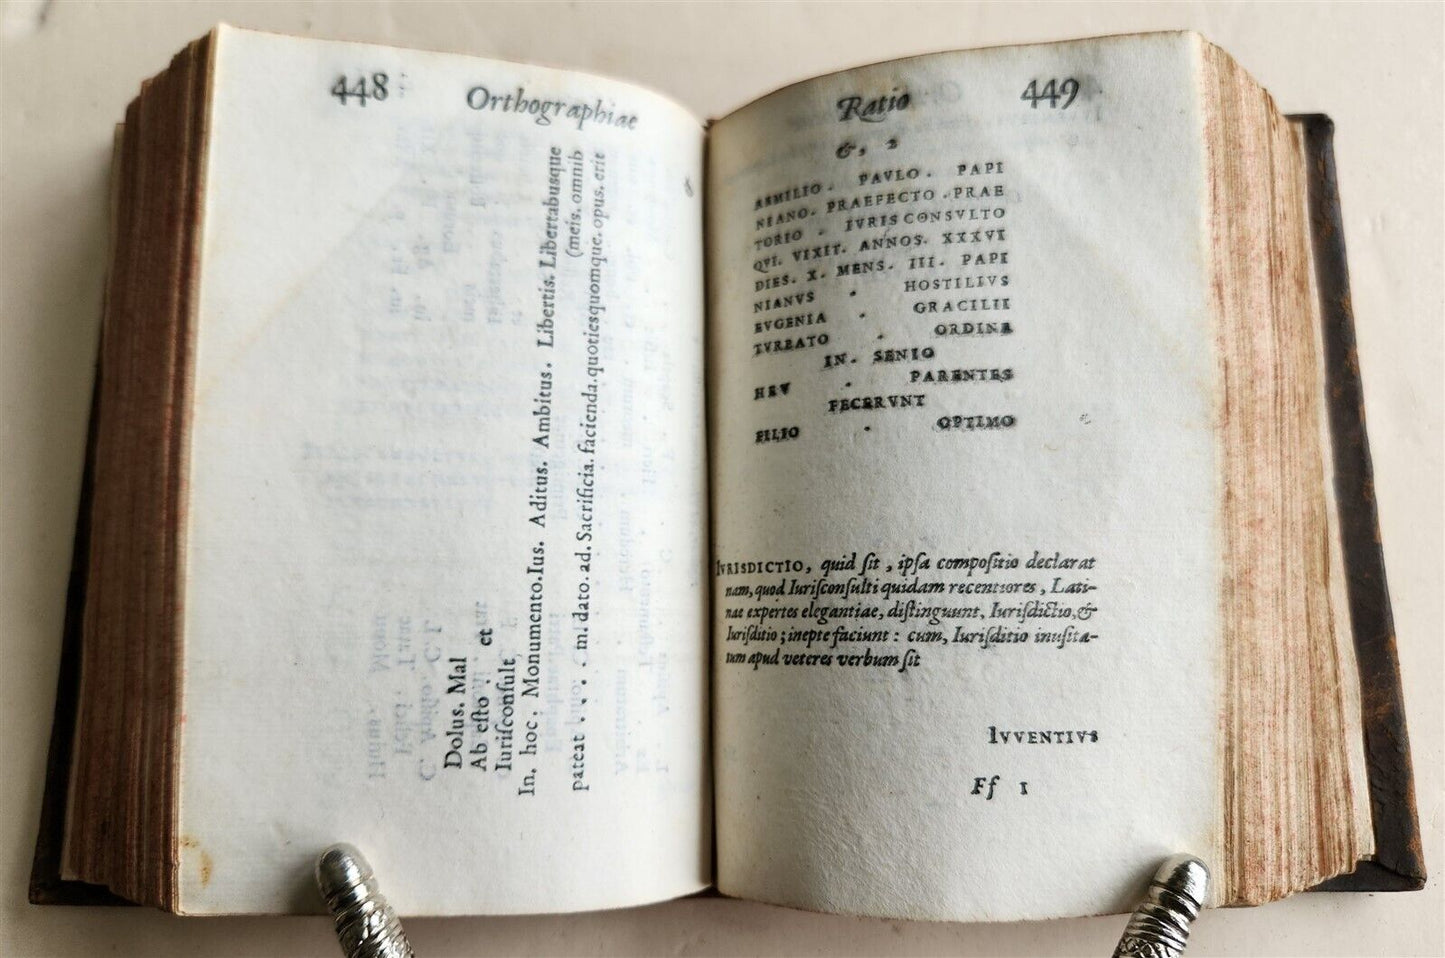 448
Orthographiae
Dolus. Mal
Ab eſto . et
Iuriſconſult
In. hoc. Monumento. Ius. Aditus. Ambitus. Libertis. Libertabusque
(meis. omnib
pateat . . . m. dato. ad. Sacrificia. facienda. quotiesquomque. opus. erit
Ratio
449
&, 2
AEMILIO. PAVLO. PAPI
NIANO. PRAEFECTO. PRAE
TORIO. IVRISCONSVLTO
QVI. VIXIT. ANNOS. XXXVI
DIES. X. MENS. III. PAPI
NIANVS . HOSTILIVS
EVGENIA . GRACILII
TVRBATO . ORDINE
IN. SENIO
HEV . PARENTES
FECERVNT
FILIO . OPTIMO
IVRISDICTIO, quid ſit, ipſa compoſitio declarat
nam, quod Iuriſconſulti quidam recentiores, Lati-
nae expertes elegantiae, diſtinguunt, Iuriſdictio, &
Iuriſditio; inepte faciunt: cum, Iuriſditio inuſita-
tum apud veteres verbum ſit
IVVENTIVS
Ff 1